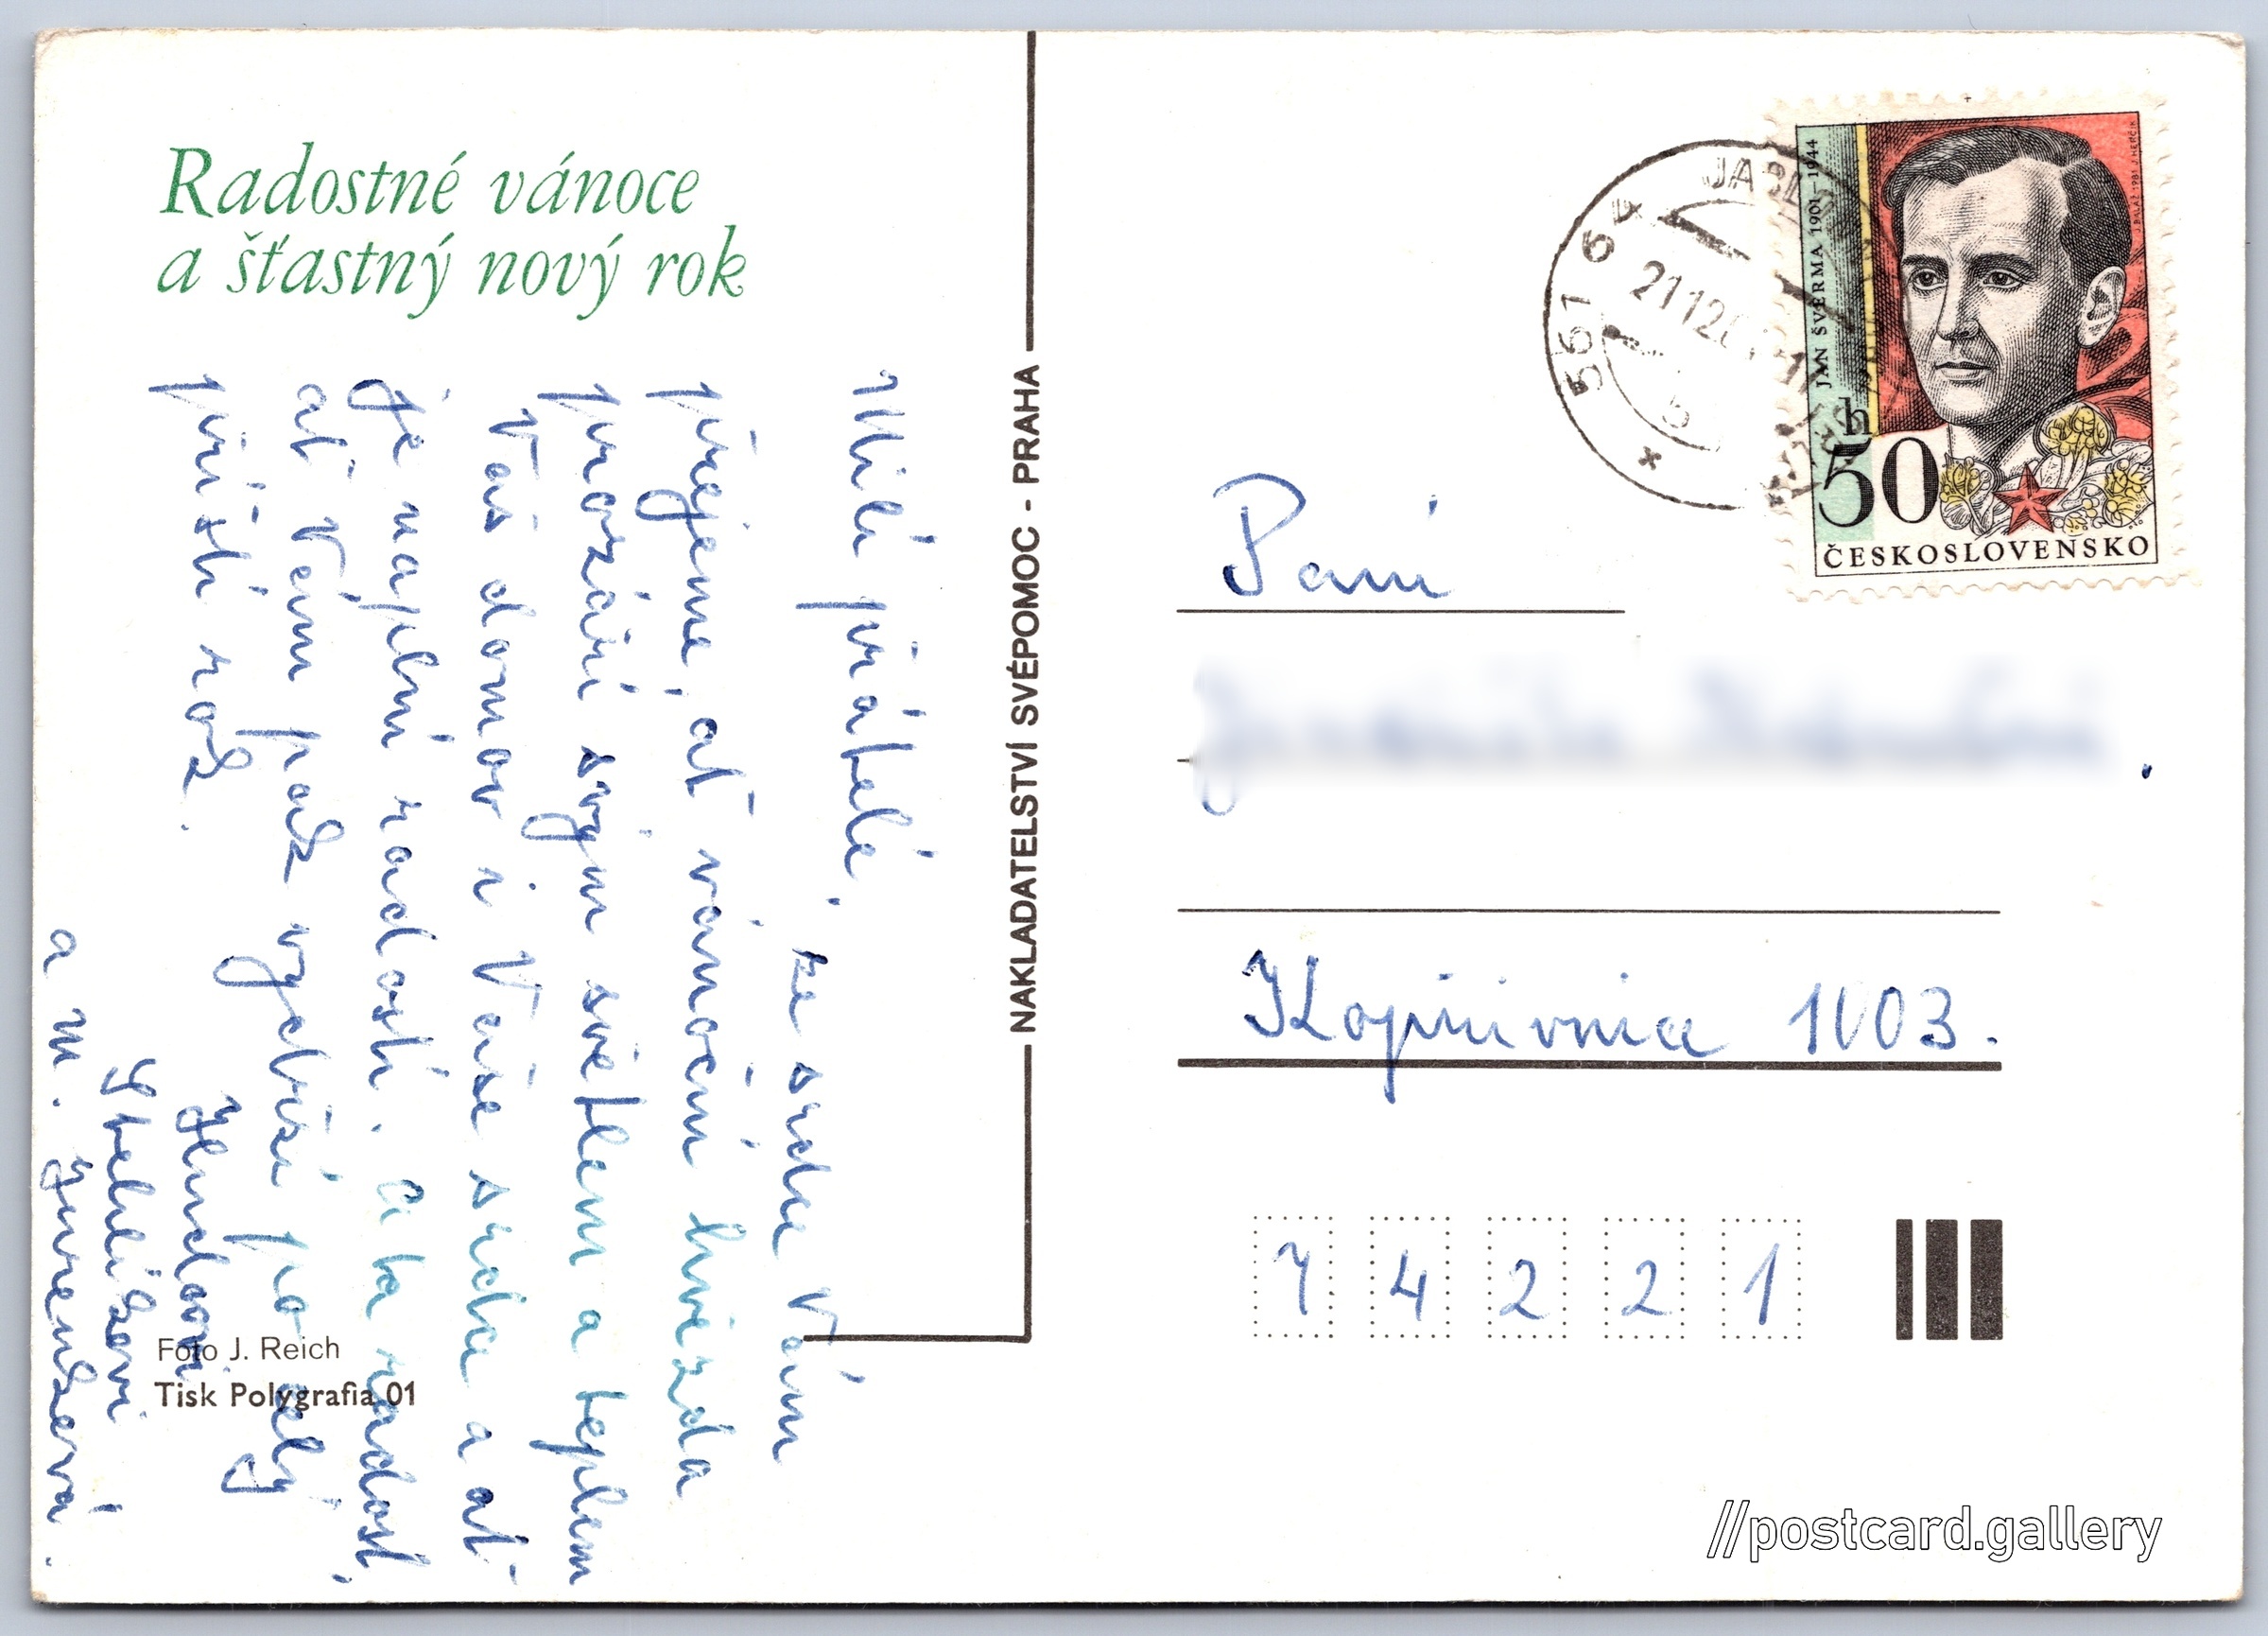 Radostné vánoce
a šťastný nový rok
Milí přátelé,
ze srdce Vám
přejeme, ať vánoční hvězda
prozáří svým světlem a teplem
Váš domov i Vaše srdce a ať
je naplní radostí. A ta radost,
ať Vám pak vydrží po celý
příští rok.
a M.
Foto J. Reich
Tisk Polygrafia 01
NAKLADATELSTVÍ SVÉPOMOC - PRAHA
561 64
2112
JAN ŠVERMA 1901–1944
h
50
ČESKOSLOVENSKO
Paní
Kopřivnice 1103.
7 4 2 2 1
//postcard.gallery